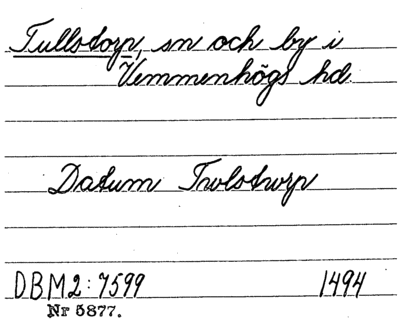 Tullstorp, sn och by i
Vemmenhögs hd
Datum Twlstworp
DBM2:7599 1494
Nr 5877.